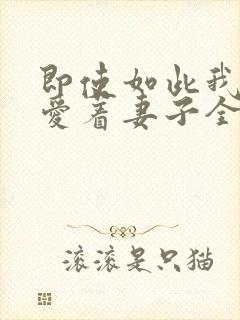 即使如此我
爱着妻子全
滚滚是只猫